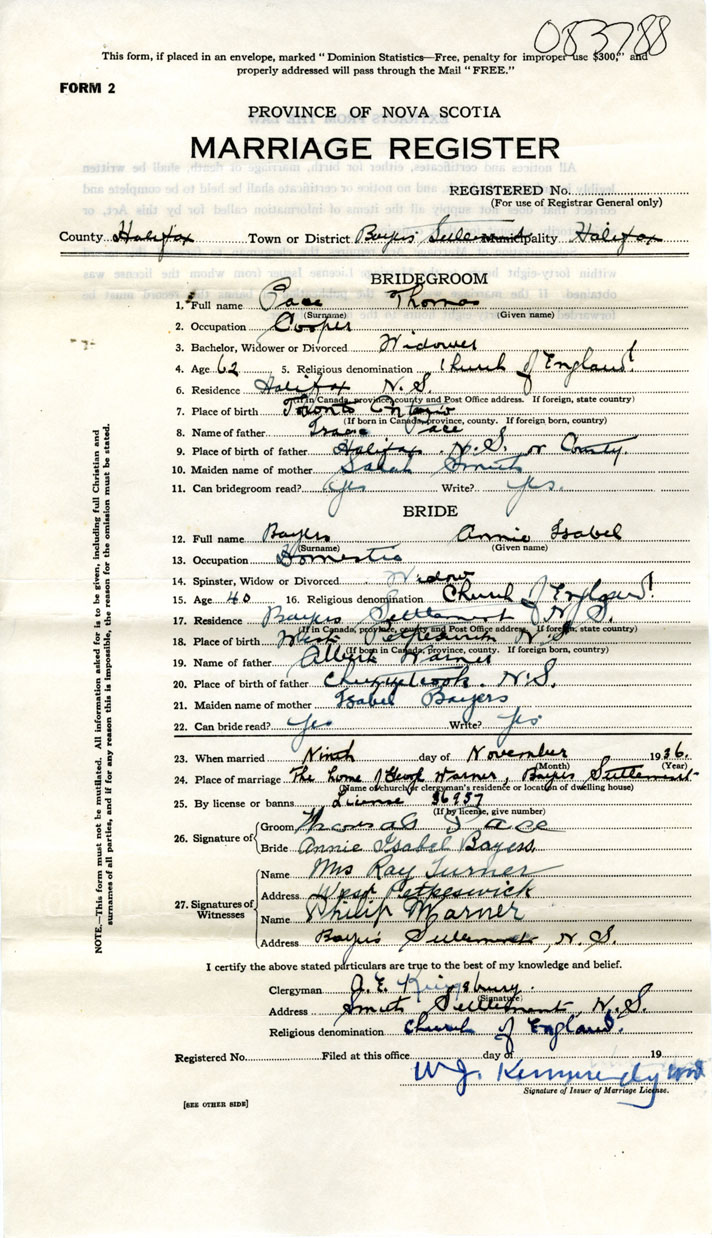 083788
This form, if placed in an envelope, marked "Dominion Statistics—Free, penalty for improper use $300," and
properly addressed will pass through the Mail "FREE."
FORM 2
PROVINCE OF NOVA SCOTIA
MARRIAGE REGISTER
REGISTERED No.
(For use of Registrar General only)
County Halifax Town or District Bayers Settlement Municipality Halifax
BRIDEGROOM
1. Full name Pace Thomas
(Surname) (Given name)
2. Occupation Cooper
3. Bachelor, Widower or Divorced Widower
4. Age 62 5. Religious denomination Church of England
6. Residence Halifax N.S.
(If in Canada, province, county and Post Office address. If foreign, state country)
7. Place of birth Toronto Ontario
(If born in Canada, province, county. If foreign born, country)
8. Name of father Isaac Pace
9. Place of birth of father Halifax N.S. or County.
10. Maiden name of mother Sarah Smith
11. Can bridegroom read? Yes Write? Yes.
BRIDE
12. Full name Bayers Annie Isabel
(Surname) (Given name)
13. Occupation Domestic
14. Spinster, Widow or Divorced Widow
15. Age 40 16. Religious denomination Church of England
17. Residence Bayers Settlement, N.S.
(If in Canada, province, county and Post Office address. If foreign, state country)
18. Place of birth West N.S
(If born in Canada, province, county. If foreign born, country)
19. Name of father Albert Warner
20. Place of birth of father Chezzetcook. N.S.
21. Maiden name of mother Isabel Bayers
22. Can bride read? Yes Write? Yes
23. When married Ninth day of November 1936.
(Month) (Year)
24. Place of marriage The home of Warner, Bayers Settlement
(Name of church or clergyman's residence or location of dwelling house)
25. By license or banns License 36957
(If by license, give number)
26. Signature of Groom Thomas Pace
Bride Annie Isabel Bayers
27. Signatures of Witnesses Name Mrs Ray Turner
Address West Petpeswick
Name Philip Warner
Address Bayers Settlement, N.S.
I certify the above stated particulars are true to the best of my knowledge and belief.
Clergyman A. E. Kingsbury.
(Signature)
Address Smiths Settlement, N.S.
Religious denomination Church of England.
Registered No. Filed at this office day of 19
W.J. Kennedy
Signature of Issuer of Marriage License.
[SEE OTHER SIDE]
NOTE.—This form must not be mutilated. All information asked for is to be given, including full Christian and
surnames of all parties, and if for any reason this is impossible, the reason for the omission must be stated.